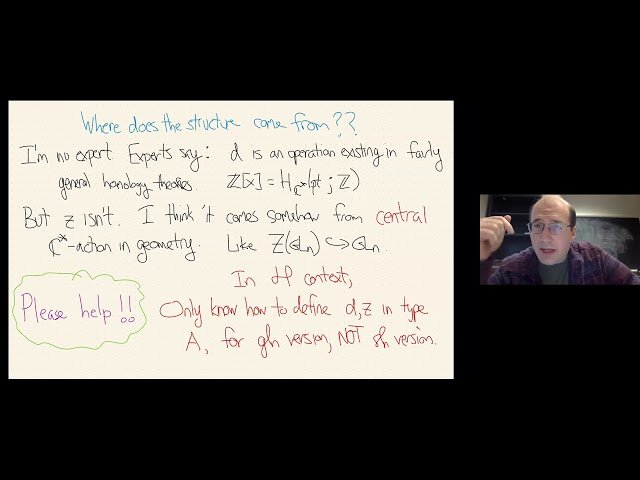 Where does the structure come from??
I'm no expert Experts say: d is an operation existing in fairly
general homology theories. ℤ[x] = H_ℂ*(pt; ℤ)
But z isn't. I think it comes somehow from central
ℂ*-action in geometry. Like Z(GLn) ↪ GLn.
Please help!!
In H context,
Only know how to define d,z in type
A, for gln version, NOT sln version.